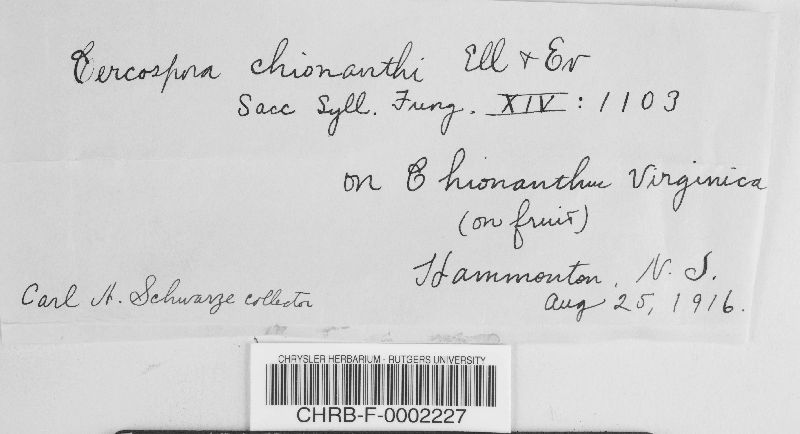 Cercospora chionanthi Ell & Ev
Sacc Syll. Fung. XIV : 1103
on Chionanthus Virginica
(on fruit)
Hammonton, N. J.
Aug 25, 1916.
Carl A. Schwarze collector
CHRYSLER HERBARIUM - RUTGERS UNIVERSITY
CHRB-F-0002227